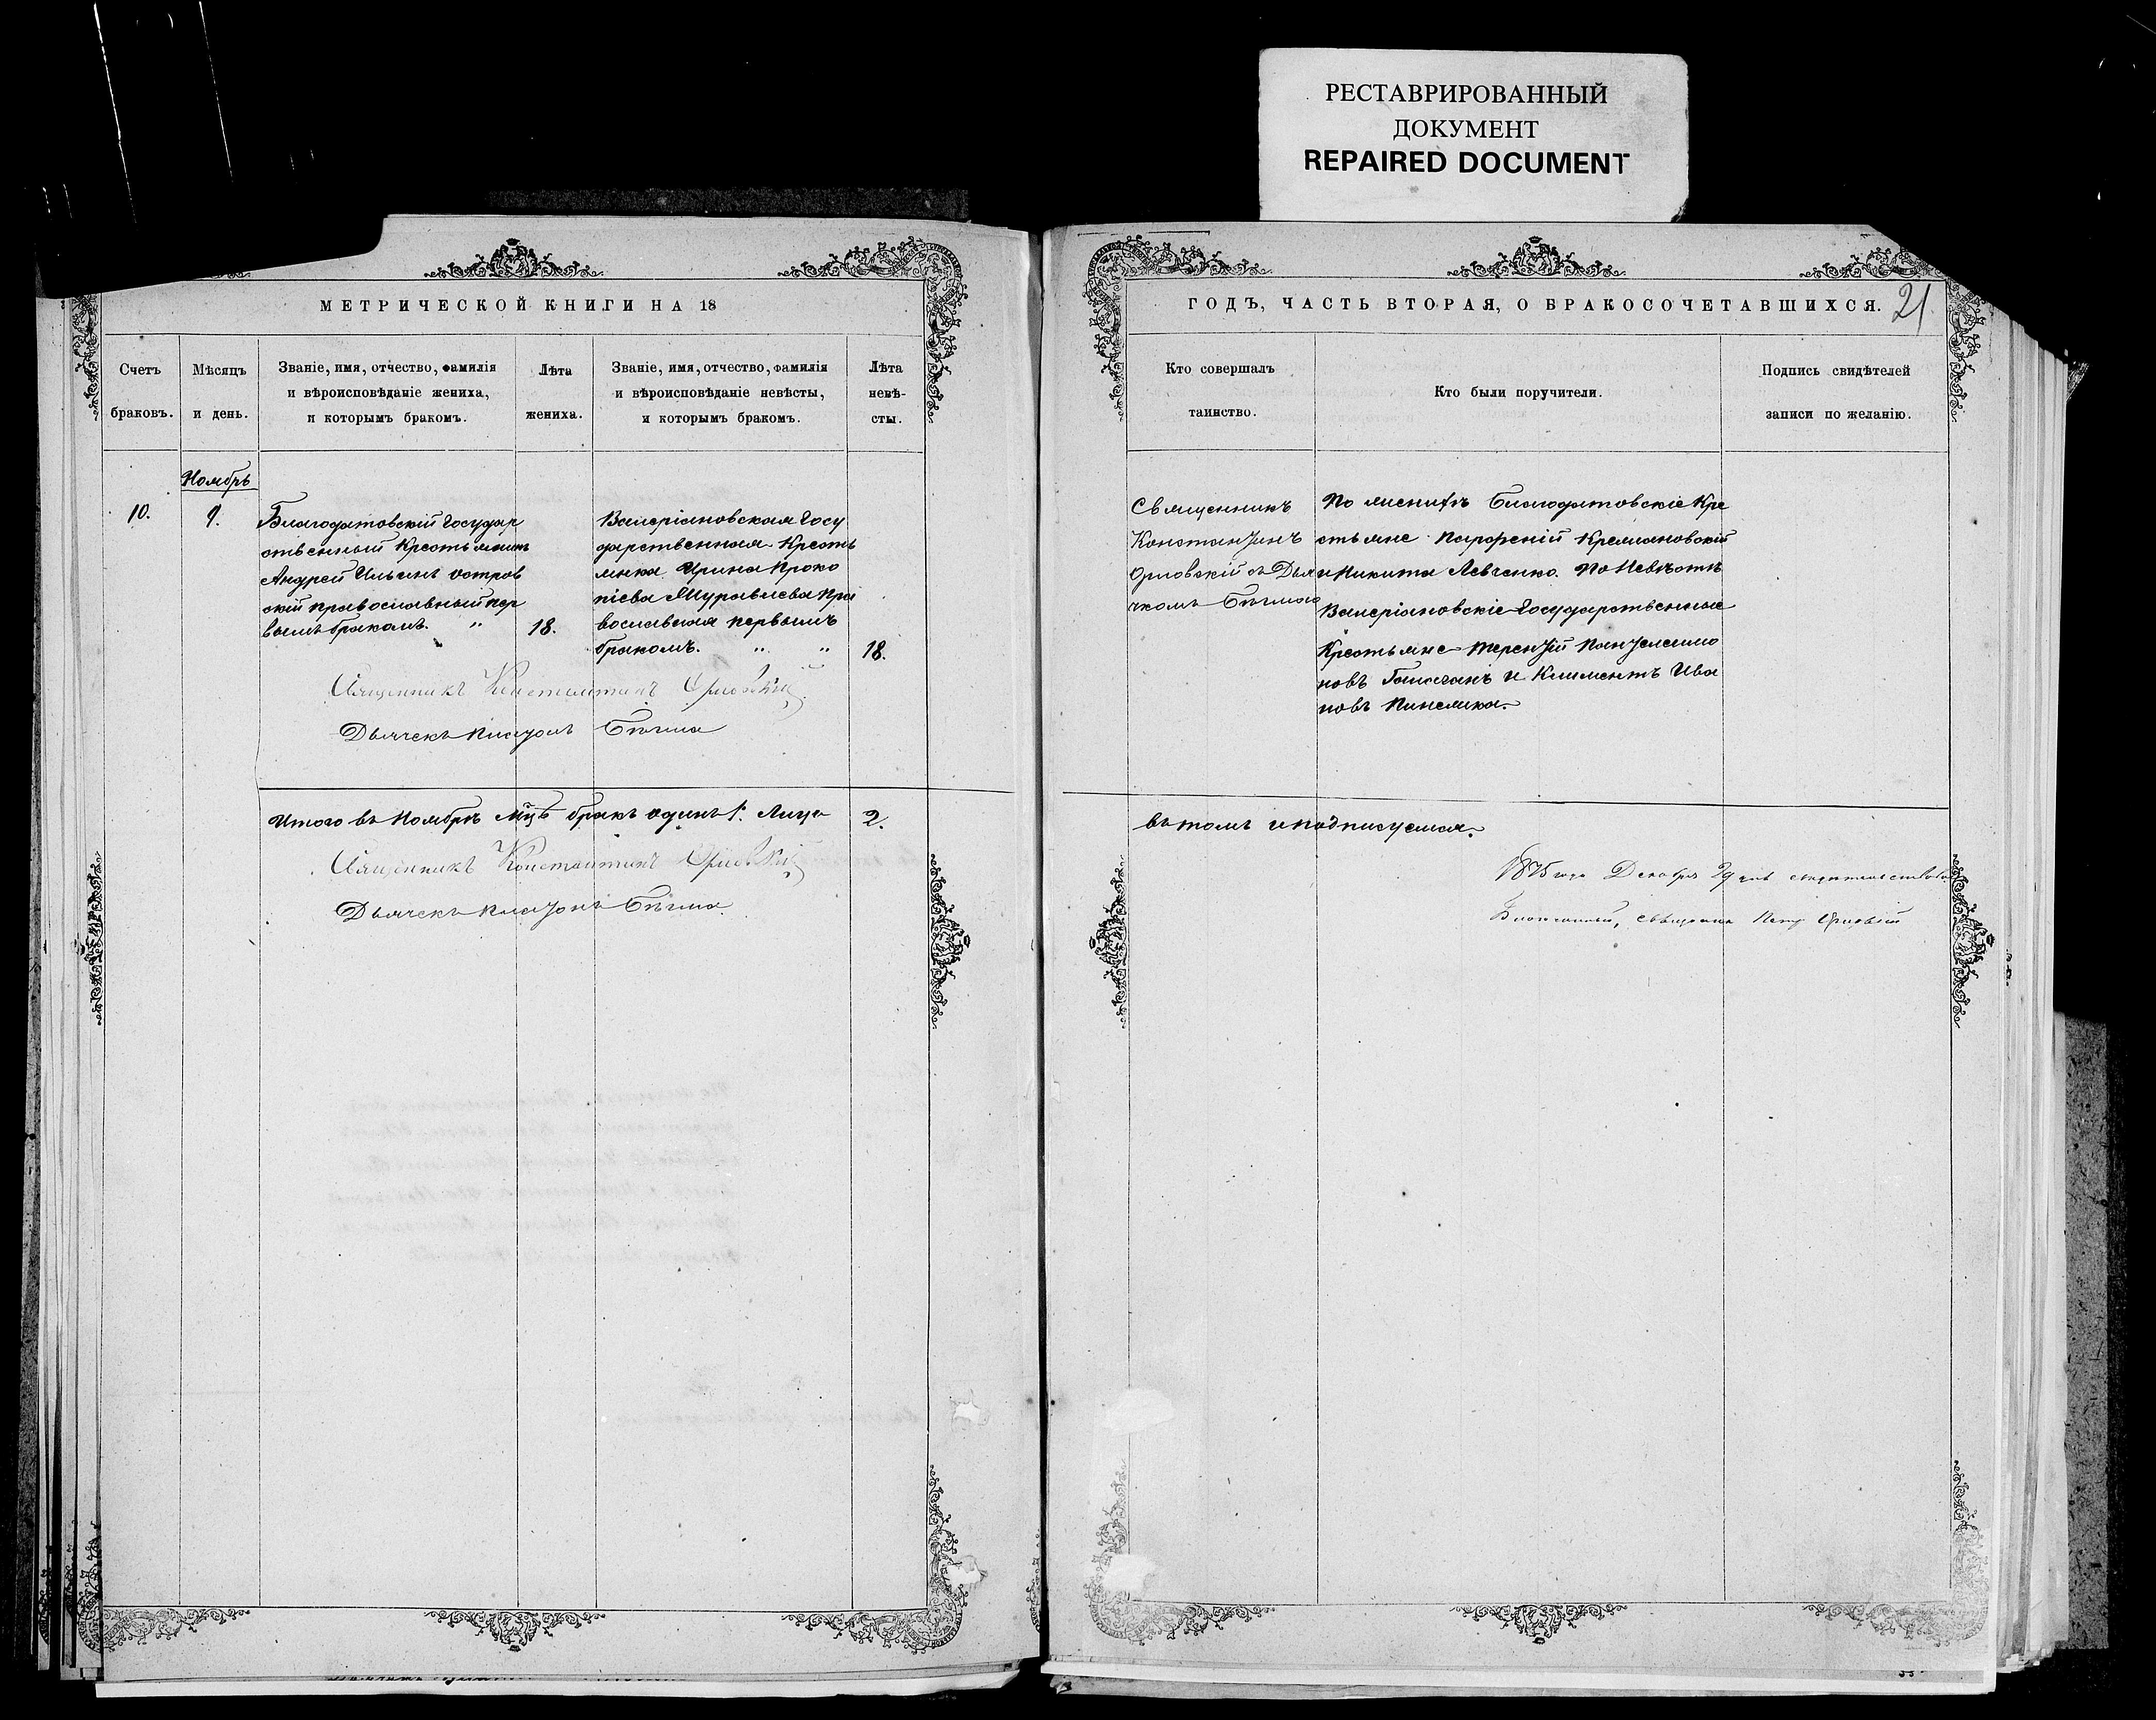 РЕСТАВРИРОВАННЫЙ
ДОКУМЕНТ
REPAIRED DOCUMENT
МЕТРИЧЕСКОЙ КНИГИ НА 18
Счетъ
браковъ.
Мѣсяцъ
и день.
Званіе, имя, отчество, фамилія
и вѣроисповѣданіе жениха,
и которымъ бракомъ.
Лѣта
жениха.
Званіе, имя, отчество, фамилія
и вѣроисповѣданіе невѣсты,
и которымъ бракомъ.
Лѣта
невѣ-
сты.
Ноябрь
10.
9.
Благодатовскій Государ
ственный Крестьянинъ
Андрей Ильинъ Остров
скій православный пер
вымъ бракомъ. "
18.
Валеріановская Госу
дарственная Кресть
янка Ирина Проко
піева Муравлева пра
вославная первымъ
бракомъ. " "
18.
Священникъ Константинъ Орловскій
Дьячекъ
Итого въ Ноябрѣ М־цѣ бракъ одинъ 1. Лица
2.
Священникъ Константинъ Орловскій
Дьячекъ
ГОДЪ, ЧАСТЬ ВТОРАЯ, О БРАКОСОЧЕТАВШИХСЯ.
21.
Кто совершалъ
таинство.
Кто были поручители.
Подпись свидѣтелей
записи по желанію.
Священникъ
Константинъ
Орловскій съ Дья
чкомъ
По женихѣ Благодатовскіе Кре
стьяне Парфеній Кремяновскій
и Никита Левченко. По Невѣстѣ
Валеріановскіе Государственные
Крестьяне Терентій Пантелеимо
новъ и Климентъ Ива
новъ
въ томъ и подписуемся.
1875 года Декабря 29 дня свидѣтельствовалъ
Благочинный, священникъ Петръ Орловскій